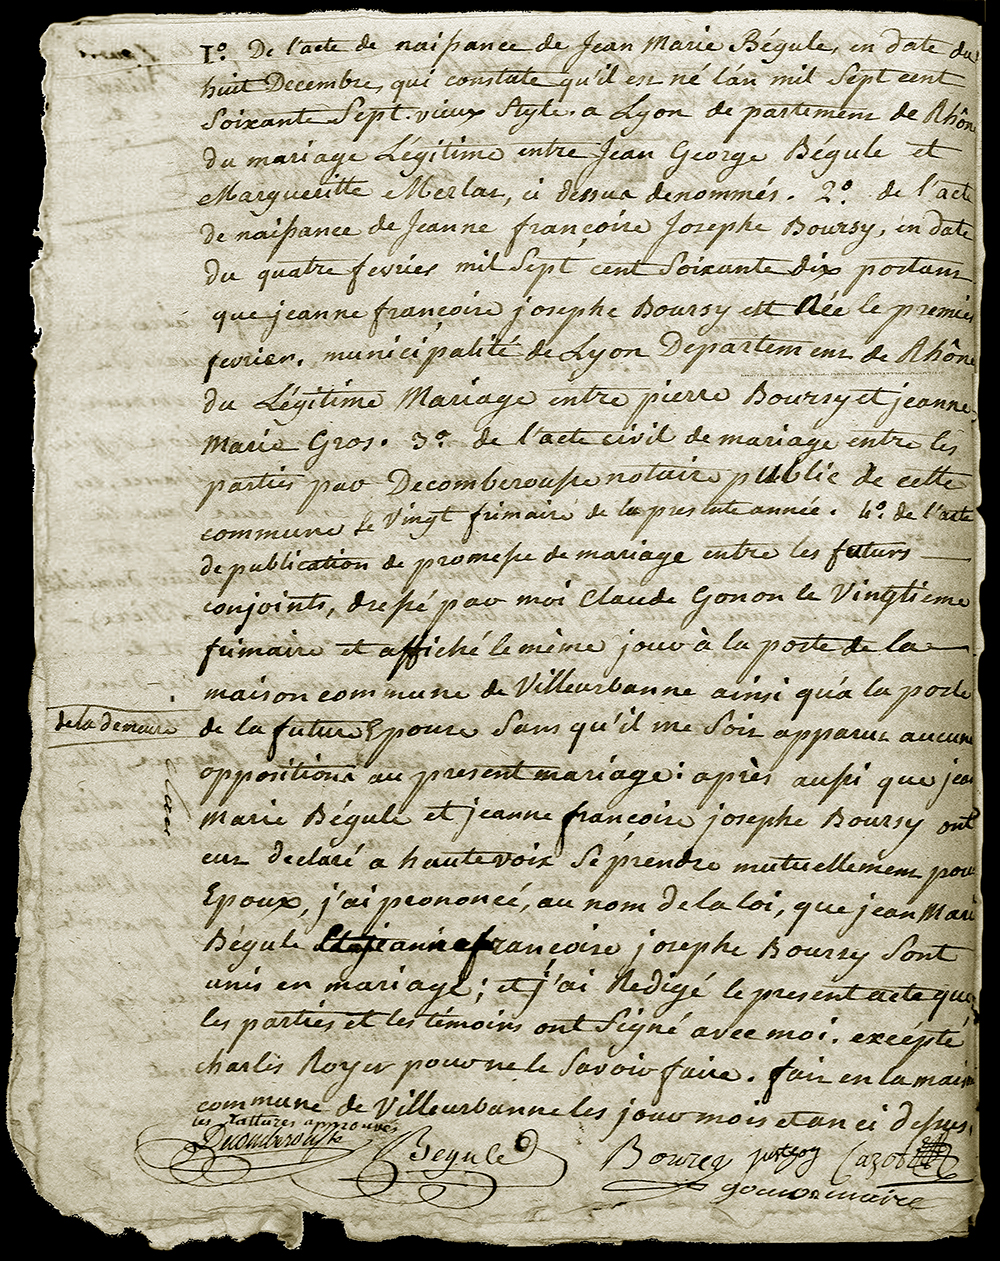 1.° De l'acte de naissance de Jean Marie Bégule, en date du
huit Decembre, qui constate qu'il est né l'an mil sept cent
soixante sept. vieux style. a Lyon departement de Rhône
du mariage Légitime entre Jean George Bégule et
Margueritte Merlar, ci dessus denommés. 2.° de l'acte
de naissance de Jeanne françoise Josephe Boursy, en date
du quatre fevrier mil sept cent soixante dix portant
que jeanne françoise josephe Boursy est Née le premier
fevrier. municipalité de Lyon Departement de Rhône
du Légitime Mariage entre pierre Boursy et jeanne
Marie Gros. 3.° de l'acte civil de mariage entre les
parties par Decomberousse notaire public de cette
commune le vingt frimaire de la presente année. 4.° de l'acte
de publication de promesse de mariage entre les futurs
conjoints, dressé par moi Claude Gonon le vingtieme
frimaire et affiché le même jour à la porte de la
maison commune de Villeurbanne ainsi qu'à la porte
de la demeure
de la future Epouse sans qu'il me soit apparut aucune
opposition au present mariage: après aussi que jean
Marie Bégule et jeanne françoise josephe Boursy ont
eut declaré a haute voix se prendre mutuellement pour
Epoux, j'ai prononcé, au nom de la loi, que jean Marie
Bégule et jeanne françoise josephe Boursy sont
unis en mariage; et j'ai Redigé le present acte que
les parties et les témoins ont signé avec moi. excépté
charles Royer pour ne le savoir faire. fait en la maison
commune de Villeurbanne les jour mois et an ci dessus.
les rattures approuvés
Decomberousse Begule Boursy Cazot
gonon maire